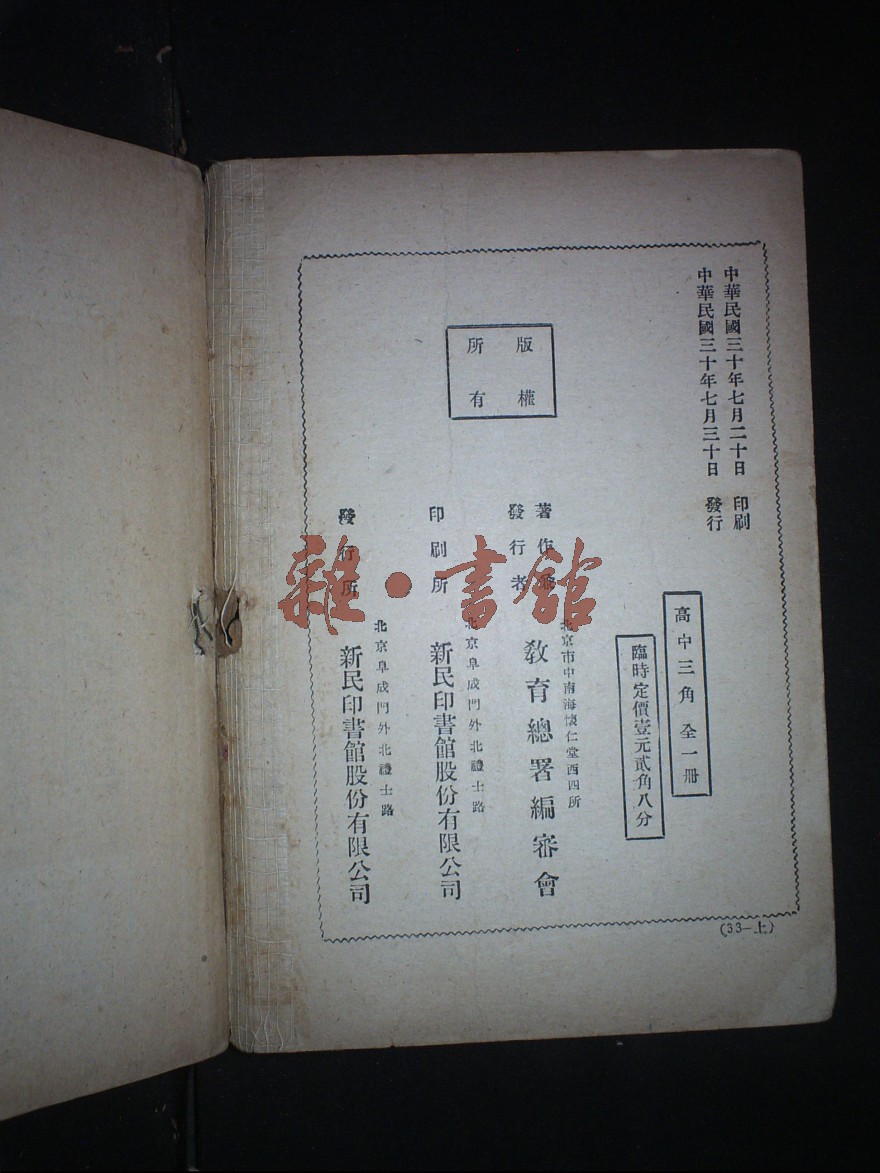 中華民國三十年七月二十日 印刷
中華民國三十年七月三十日 發行
高中三角 全一冊
臨時定價壹元貳角八分
版權
所有
著作兼
發行者
北京市中南海懷仁堂西四所
敎育總署編審會
印刷所
北京阜成門外北禮士路
新民印書館股份有限公司
發行所
北京阜成門外北禮士路
新民印書館股份有限公司
(33—上)
雜·書館